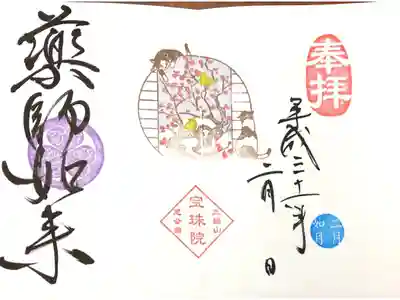 奉拝
平成三十一年
二月 日
二月
如月
三縁山
宝珠院
芝公園
藥師如来